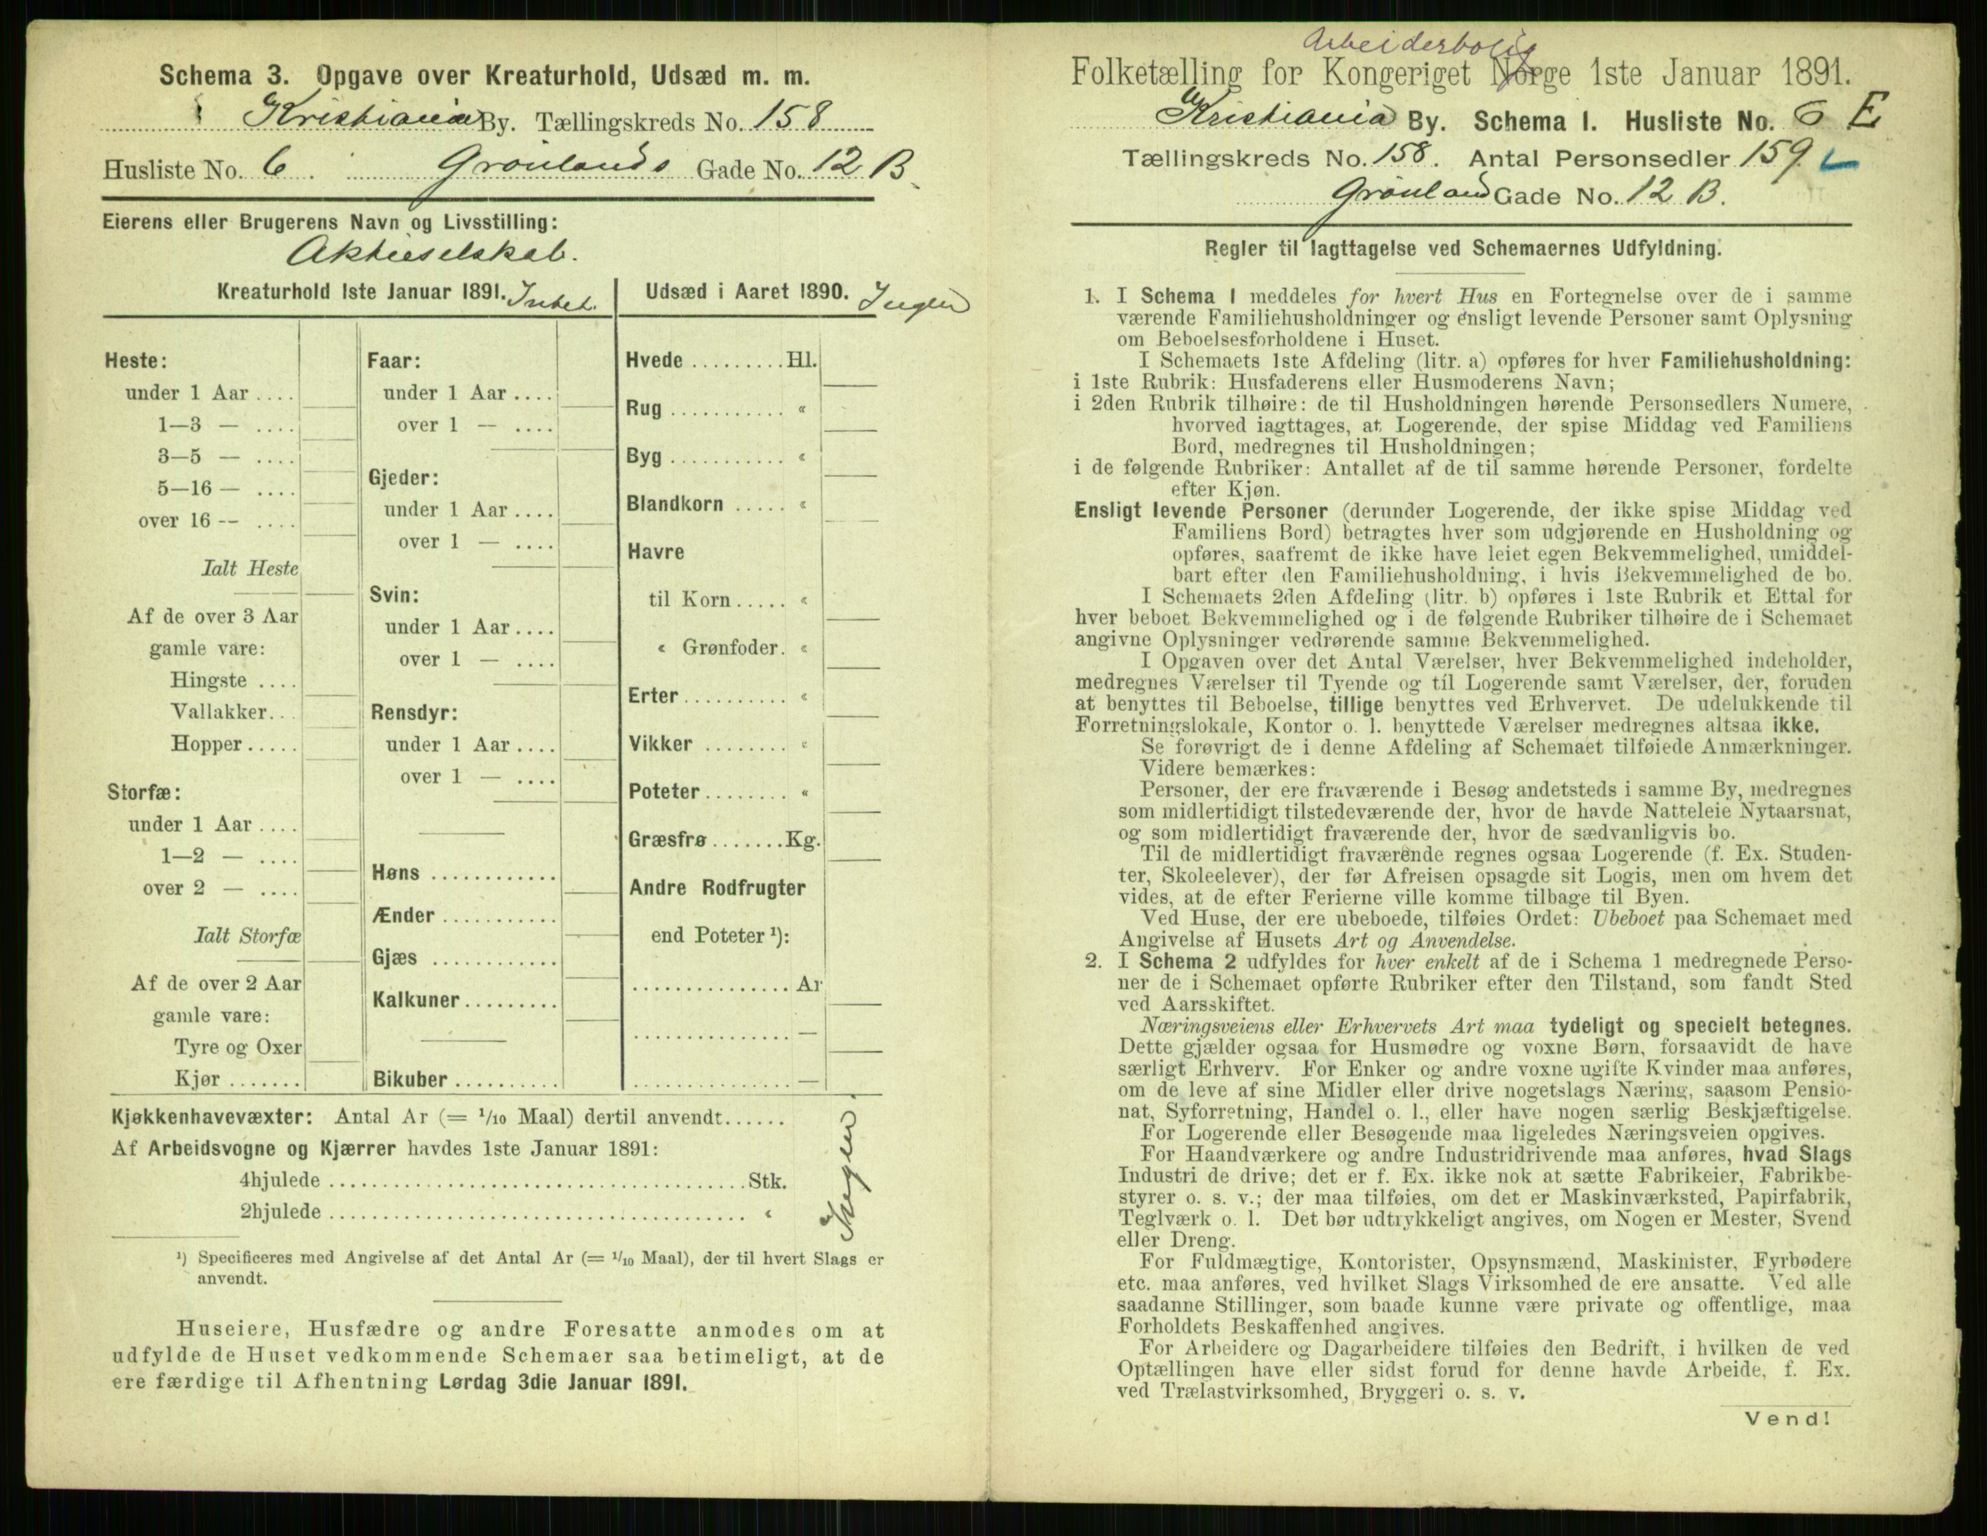 Schema 3. Opgave over Kreaturhold, Udsæd m. m.
Kristiania By. Tællingskreds No. 158
Husliste No. 6. Grönlands Gade No. 12 B.
Eierens eller Brugerens Navn og Livsstilling:
Aktieselskab.
Kreaturhold 1ste Januar 1891. Intet.
Heste:
under 1 Aar ....
1—3 — ....
3—5 — ....
5—16 — ....
over 16 -- ....
Ialt Heste
Af de over 3 Aar
gamle vare:
Hingste ....
Vallakker...
Hopper.....
Storfæ:
under 1 Aar ....
1—2 — ....
over 2 — ....
Ialt Storfæ
Af de over 2 Aar
gamle vare:
Tyre og Oxer
Kjør.......
Faar:
under 1 Aar ....
over 1 — ....
Gjeder:
under 1 Aar ....
over 1 — ....
Svin:
under 1 Aar ....
over 1 — ....
Rensdyr:
under 1 Aar ....
over 1 — ....
Høns ............
Ænder ...........
Gjæs ............
Kalkuner.........
Bikuber..........
Udsæd i Aaret 1890. Ingen
Hvede ......... Hl.
Rug ........... «
Byg ........... «
Blandkorn ..... «
Havre
til Korn..... «
« Grønfoder. «
Erter.......... «
Vikker ........ «
Poteter........ «
Græsfrø ....... Kg.
Andre Rodfrugter
end Poteter ¹):
............... Ar
............... —
............... —
Kjøkkenhavevæxter: Antal Ar (= 1/10 Maal) dertil anvendt......
Af Arbeidsvogne og Kjærrer havdes 1ste Januar 1891:
4hjulede ..................................... Stk.
2hjulede ..................................... «
Ingen.
¹) Specificeres med Angivelse af det Antal Ar (= 1/10 Maal), der til hvert Slags er
anvendt.
Huseiere, Husfædre og andre Foresatte anmodes om at
udfylde de Huset vedkommende Schemaer saa betimeligt, at de
ere færdige til Afhentning Lørdag 3die Januar 1891.
Arbeiderbolig
Folketælling for Kongeriget Norge 1ste Januar 1891.
Kristiania By. Schema 1. Husliste No. 6 E
Tællingskreds No. 158. Antal Personsedler 159
Grönland Gade No. 12 B.
Regler til Iagttagelse ved Schemaernes Udfyldning.
1. I Schema 1 meddeles for hvert Hus en Fortegnelse over de i samme
værende Familiehusholdninger og ensligt levende Personer samt Oplysning
om Beboelsesforholdene i Huset.
I Schemaets 1ste Afdeling (litr. a) opføres for hver Familiehusholdning:
i 1ste Rubrik: Husfaderens eller Husmoderens Navn;
i 2den Rubrik tilhøire: de til Husholdningen hørende Personsedlers Numere,
hvorved iagttages, at Logerende, der spise Middag ved Familiens
Bord, medregnes til Husholdningen;
i de følgende Rubriker: Antallet af de til samme hørende Personer, fordelte
efter Kjøn.
Ensligt levende Personer (derunder Logerende, der ikke spise Middag ved
Familiens Bord) betragtes hver som udgjørende en Husholdning og
opføres, saafremt de ikke have leiet egen Bekvemmelighed, umiddel-
bart efter den Familiehusholdning, i hvis Bekvemmelighed de bo.
I Schemaets 2den Afdeling (litr. b) opføres i 1ste Rubrik et Ettal for
hver beboet Bekvemmelighed og i de følgende Rubriker tilhøire de i Schemaet
angivne Oplysninger vedrørende samme Bekvemmelighed.
I Opgaven over det Antal Værelser, hver Bekvemmelighed indeholder,
medregnes Værelser til Tyende og til Logerende samt Værelser, der, foruden
at benyttes til Beboelse, tillige benyttes ved Erhvervet. De udelukkende til
Forretningslokale, Kontor o. l. benyttede Værelser medregnes altsaa ikke.
Se forøvrigt de i denne Afdeling af Schemaet tilføiede Anmærkninger.
Videre bemærkes:
Personer, der ere fraværende i Besøg andetsteds i samme By, medregnes
som midlertidigt tilstedeværende der, hvor de havde Natteleie Nytaarsnat,
og som midlertidigt fraværende der, hvor de sædvanligvis bo.
Til de midlertidigt fraværende regnes ogsaa Logerende (f. Ex. Studen-
ter, Skoleelever), der før Afreisen opsagde sit Logis, men om hvem det
vides, at de efter Ferierne ville komme tilbage til Byen.
Ved Huse, der ere ubeboede, tilføies Ordet: Ubeboet paa Schemaet med
Angivelse af Husets Art og Anvendelse.
2. I Schema 2 udfyldes for hver enkelt af de i Schema 1 medregnede Perso-
ner de i Schemaet opførte Rubriker efter den Tilstand, som fandt Sted
ved Aarsskiftet.
Næringsveiens eller Erhvervets Art maa tydeligt og specielt betegnes.
Dette gjælder ogsaa for Husmødre og voxne Børn, forsaavidt de have
særligt Erhverv. For Enker og andre voxne ugifte Kvinder maa anføres,
om de leve af sine Midler eller drive nogetslags Næring, saasom Pensio-
nat, Syforretning, Handel o. l., eller have nogen særlig Beskjæftigelse.
For Logerende eller Besøgende maa ligeledes Næringsveien opgives.
For Haandværkere og andre Industridrivende maa anføres, hvad Slags
Industri de drive; det er f. Ex. ikke nok at sætte Fabrikeier, Fabrikbe-
styrer o. s. v.; der maa tilføies, om det er Maskinværksted, Papirfabrik,
Teglværk o. l. Det bør udtrykkeligt angives, om Nogen er Mester, Svend
eller Dreng.
For Fuldmægtige, Kontorister, Opsynsmænd, Maskinister, Fyrbødere
etc. maa anføres, ved hvilket Slags Virksomhed de ere ansatte. Ved alle
saadanne Stillinger, som baade kunne være private og offentlige, maa
Forholdets Beskaffenhed angives.
For Arbeidere og Dagarbeidere tilføies den Bedrift, i hvilken de ved
Optællingen have eller sidst forud for denne havde Arbeide, f. Ex.
ved Trælastvirksomhed, Bryggeri o. s. v.
Vend!